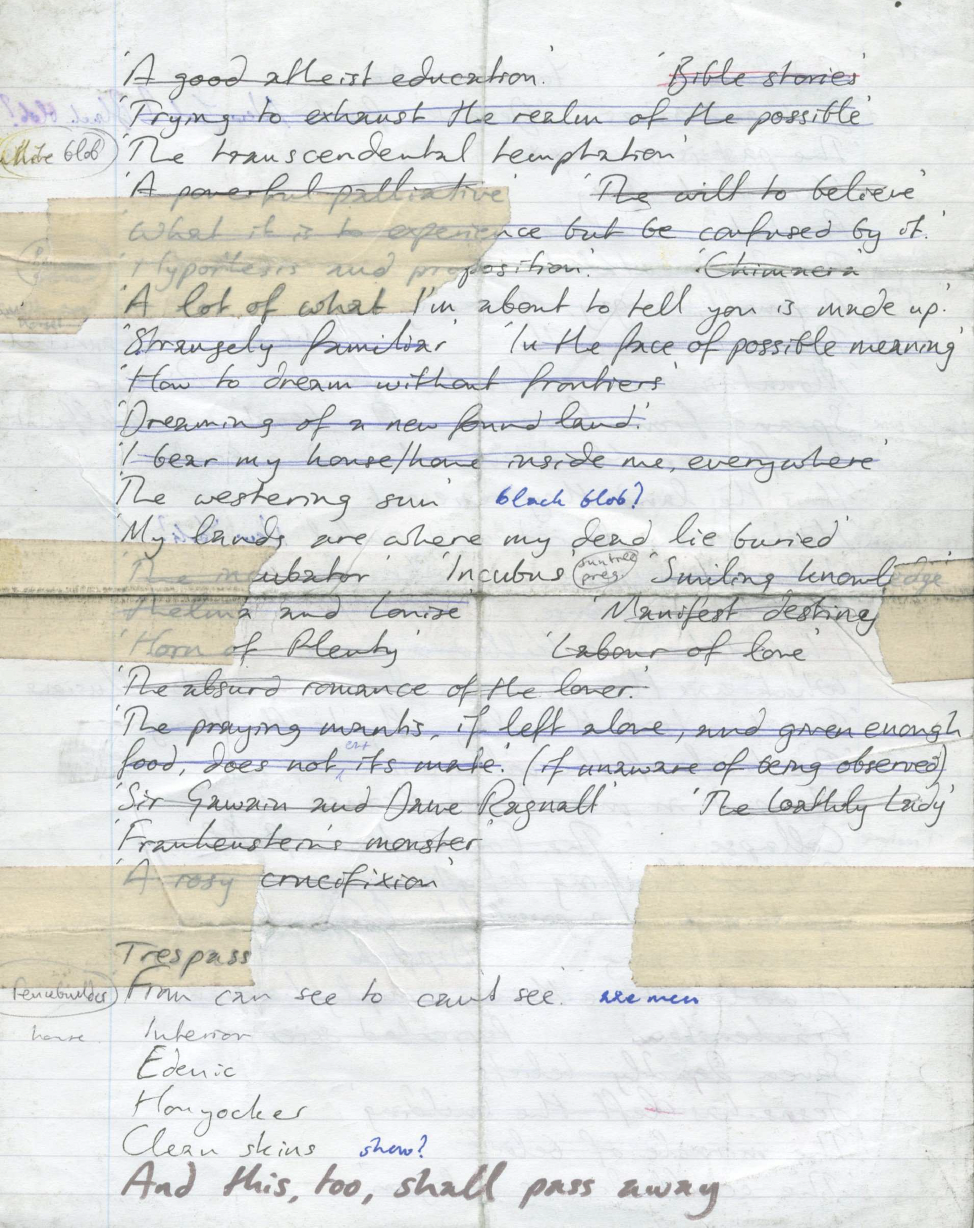 'A good atheist education.' 'Bible stories'
'Trying to exhaust the realm of the possible'
white blob 'The transcendental temptation'
'A powerful palliative' 'The will to believe'
What it is to experience but be confused by it.'
'Hypothesis and proposition.' 'Chimaera'
'A lot of what I'm about to tell you is made up.'
'Strangely familiar' 'In the face of possible meaning'
'How to dream without frontiers'
'Dreaming of a new found land.'
'I bear my house/home inside me, everywhere'
'The westering sun' black blob?
'My lands are where my dead lie buried'
'The incubator' 'Incubus' 'Smiling knowledge
'Thelma and Louise' 'Manifest destiny'
'Horn of Plenty' 'Labour of love'
'The absurd romance of the lover.'
'The praying mantis, if left alone, and given enough
food, does not eat its mate.' (if unaware of being observed)
'Sir Gawain and Dame Ragnall' 'The Loathly Lady'
'Frankenstein's monster'
'A rosy crucifixion'
Trespass
fencebuilder From can see to can't see. axe men
house. Interior
Edenic
Honyocker
Clean skins show?
And this, too, shall pass away